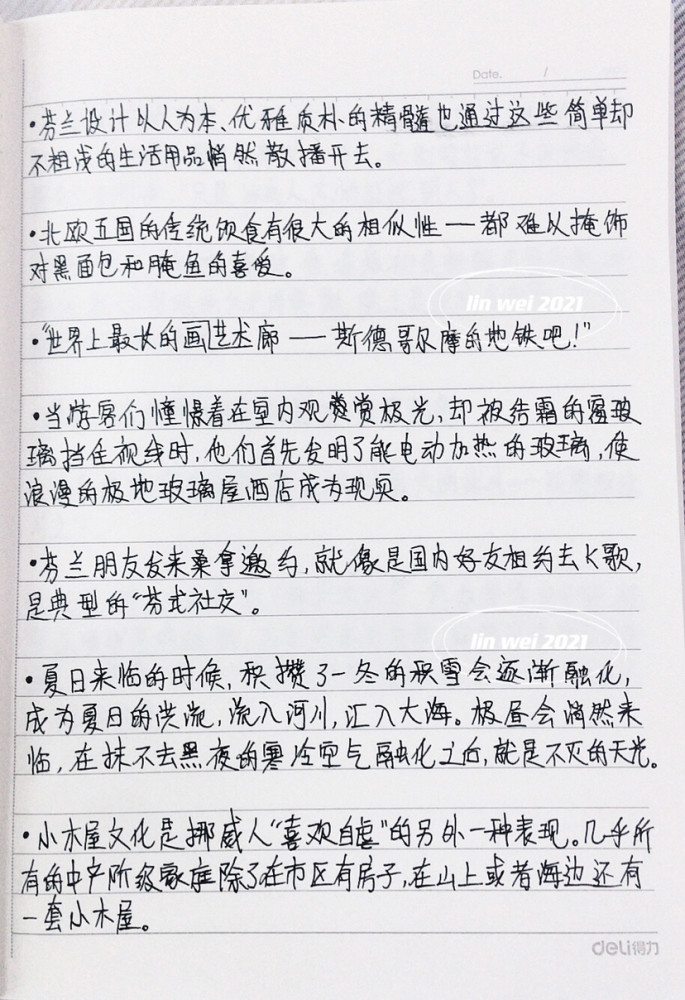 Date. /
•芬兰设计以人为本、优雅质朴的精髓也通过这些简单却
不粗浅的生活用品悄然散播开去。
•北欧五国的传统饮食有很大的相似性——都难以掩饰
对黑面包和腌鱼的喜爱。
lin wei 2021
•"世界上最长的画艺术廊——斯德哥尔摩的地铁吧!"
•当游客们憧憬着在室内观赏极光,却被结霜的窗玻
璃挡住视线时,他们首先发明了能电动加热的玻璃,使
浪漫的极地玻璃屋酒店成为现实。
•芬兰朋友发来桑拿邀约,就像是国内好友相约去K歌,
是典型的"芬式社交"。
lin wei 2021
•夏日来临的时候,积攒了一冬的积雪会逐渐融化,
成为夏日的洪流,流入河川,汇入大海。极昼会悄然来
临,在抹不去黑夜的寒冷空气融化之后,就是不灭的天光。
•小木屋文化是挪威人"喜欢自虐"的另外一种表现。几乎所
有的中产阶级家庭除了在市区有房子,在山上或者海边还有
一套小木屋。
deli得力